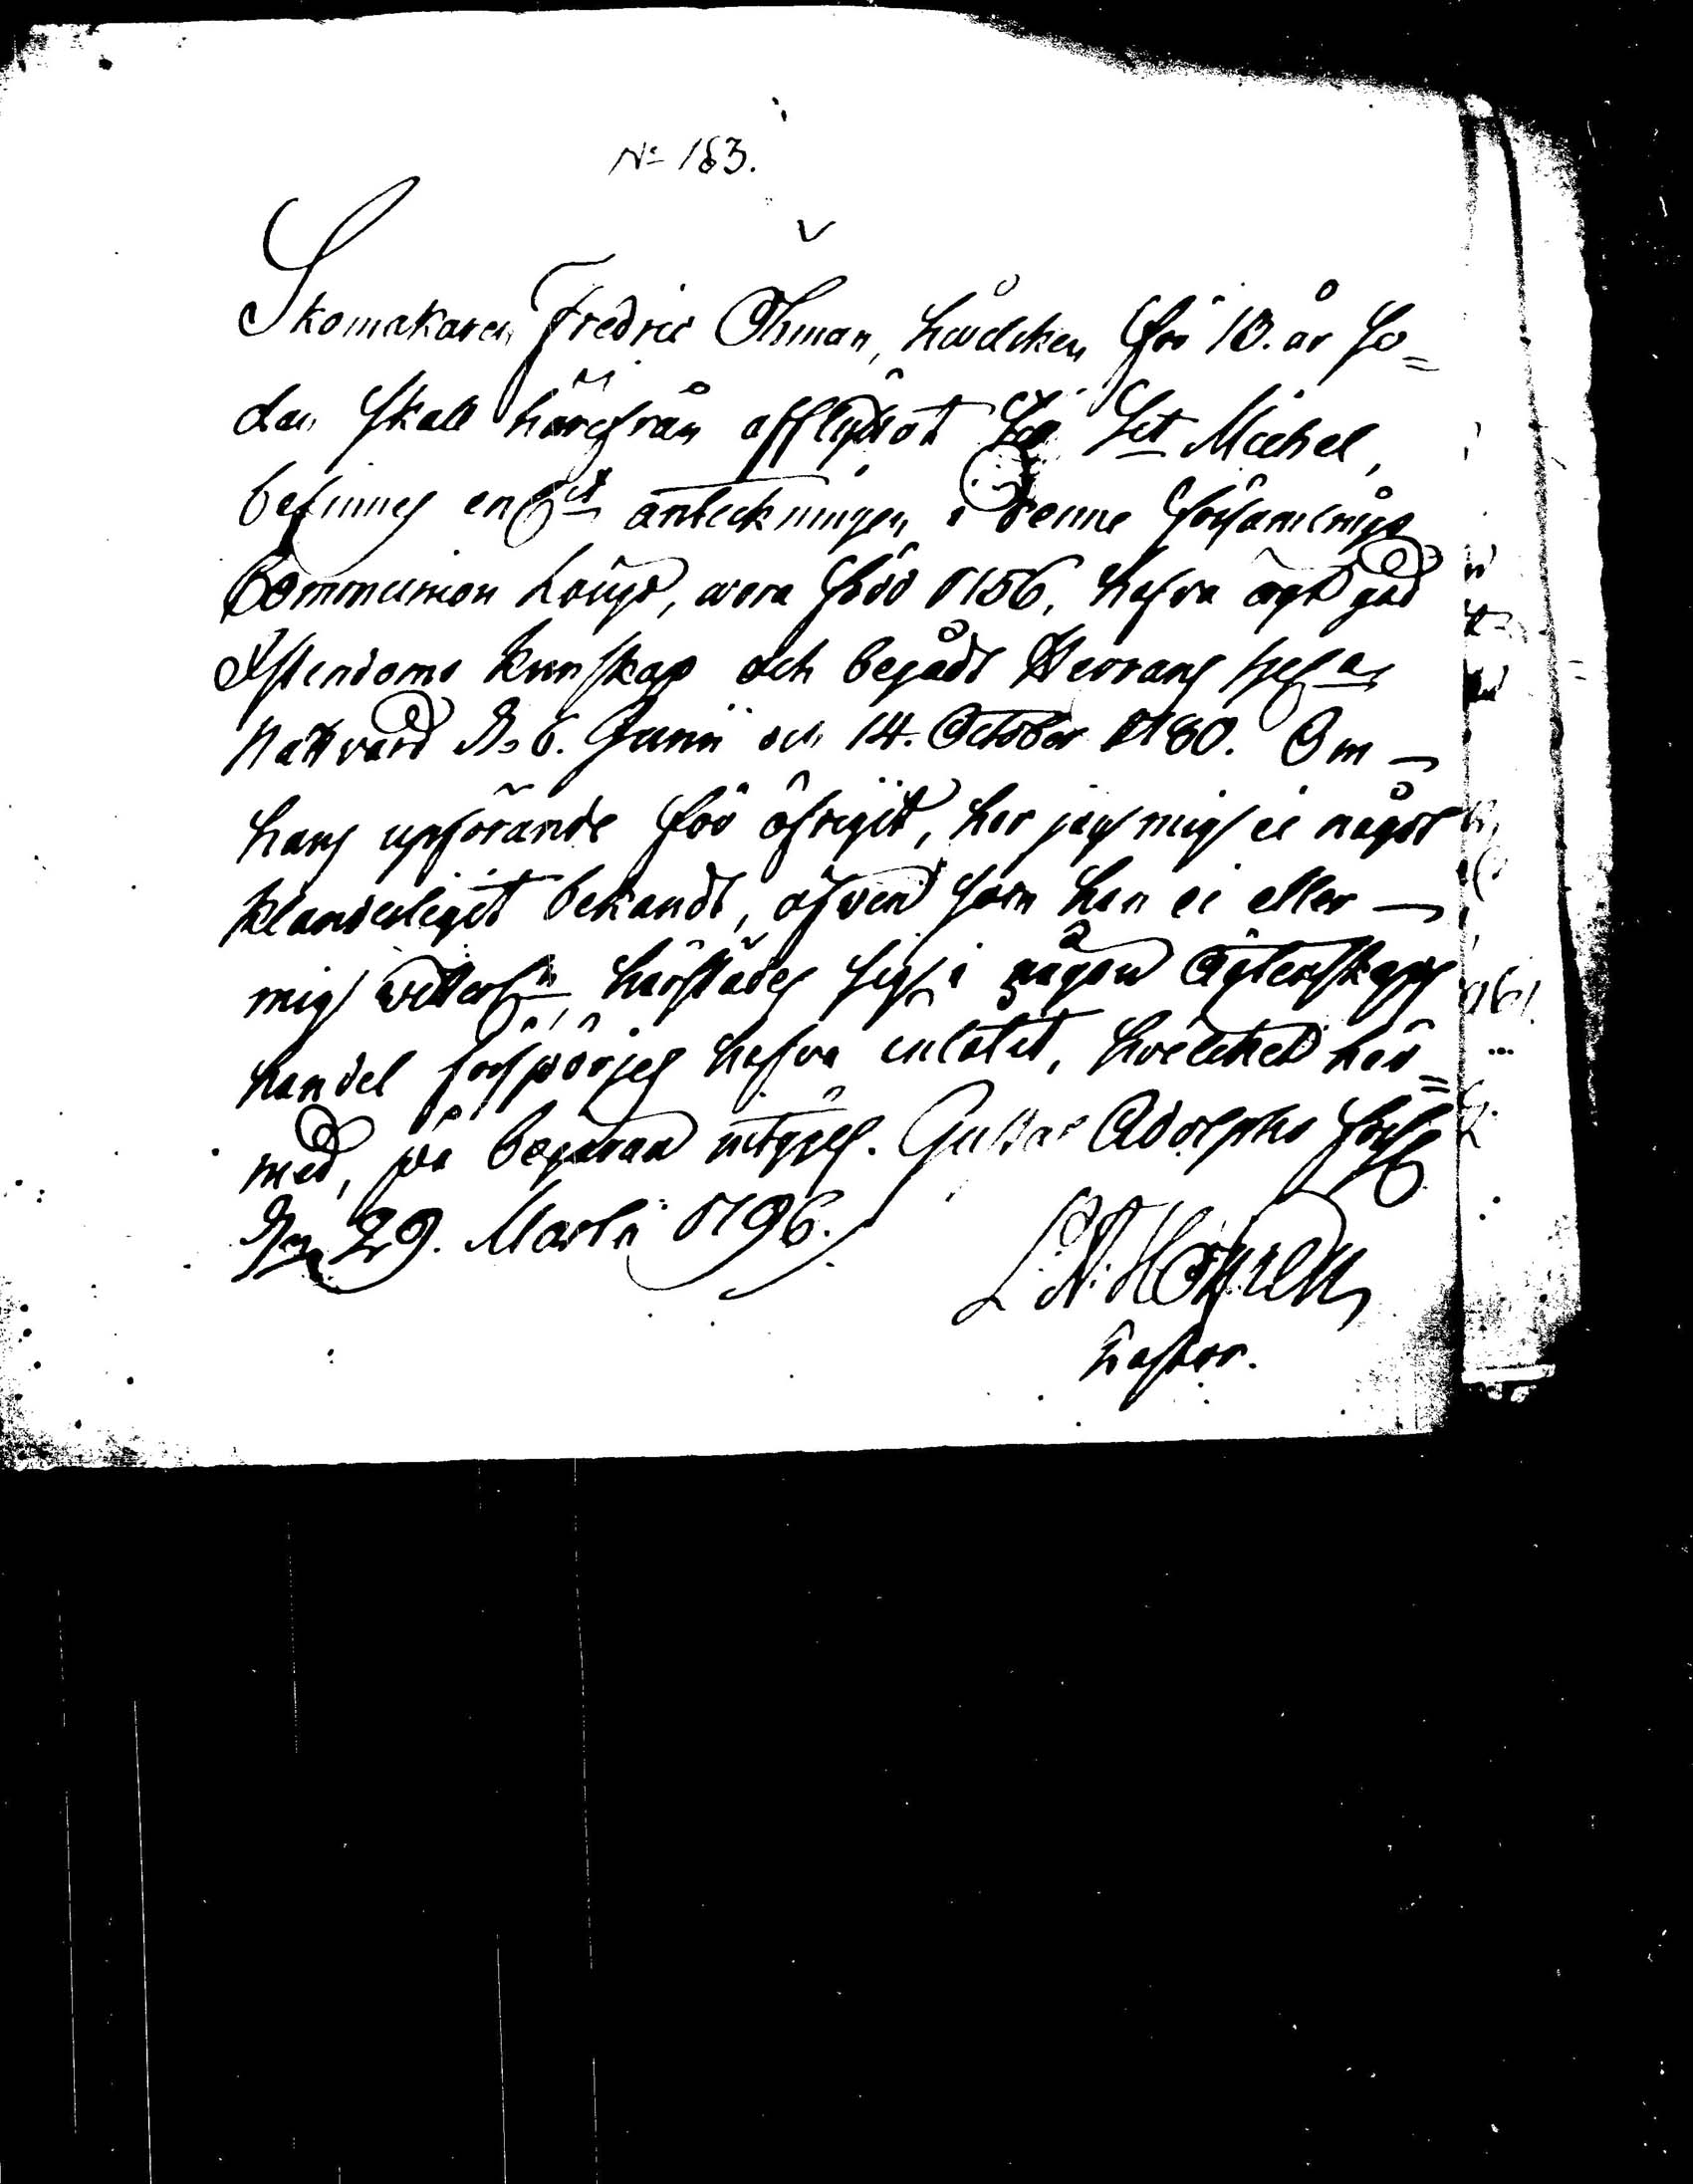 No 183.
Skomakaren Fredric Öhman, hvilcken för 13. år se=
dan skall härifrån afflyttat till St Michel,
befinnes enligt anteckningen i denne församlings
Communion Längd, vara född 1756, hafva ägt god
Christendoms kunskap och begådt Herrans helga
Nattvard d. 6. Junii och 14. October 1780. Om
hans upförande för öfrigit, har jag mig ei något
klanderligit bekandt, äfven som han ei eller
mig vetterl:n härstädes sig i någon Ägtenskaps
handel förspörjes hafva inlåtit, hvilcket här=
med, på begäran utgifves. Gustaf Adolphs
d. 29. Martii 1796.
Pastor.